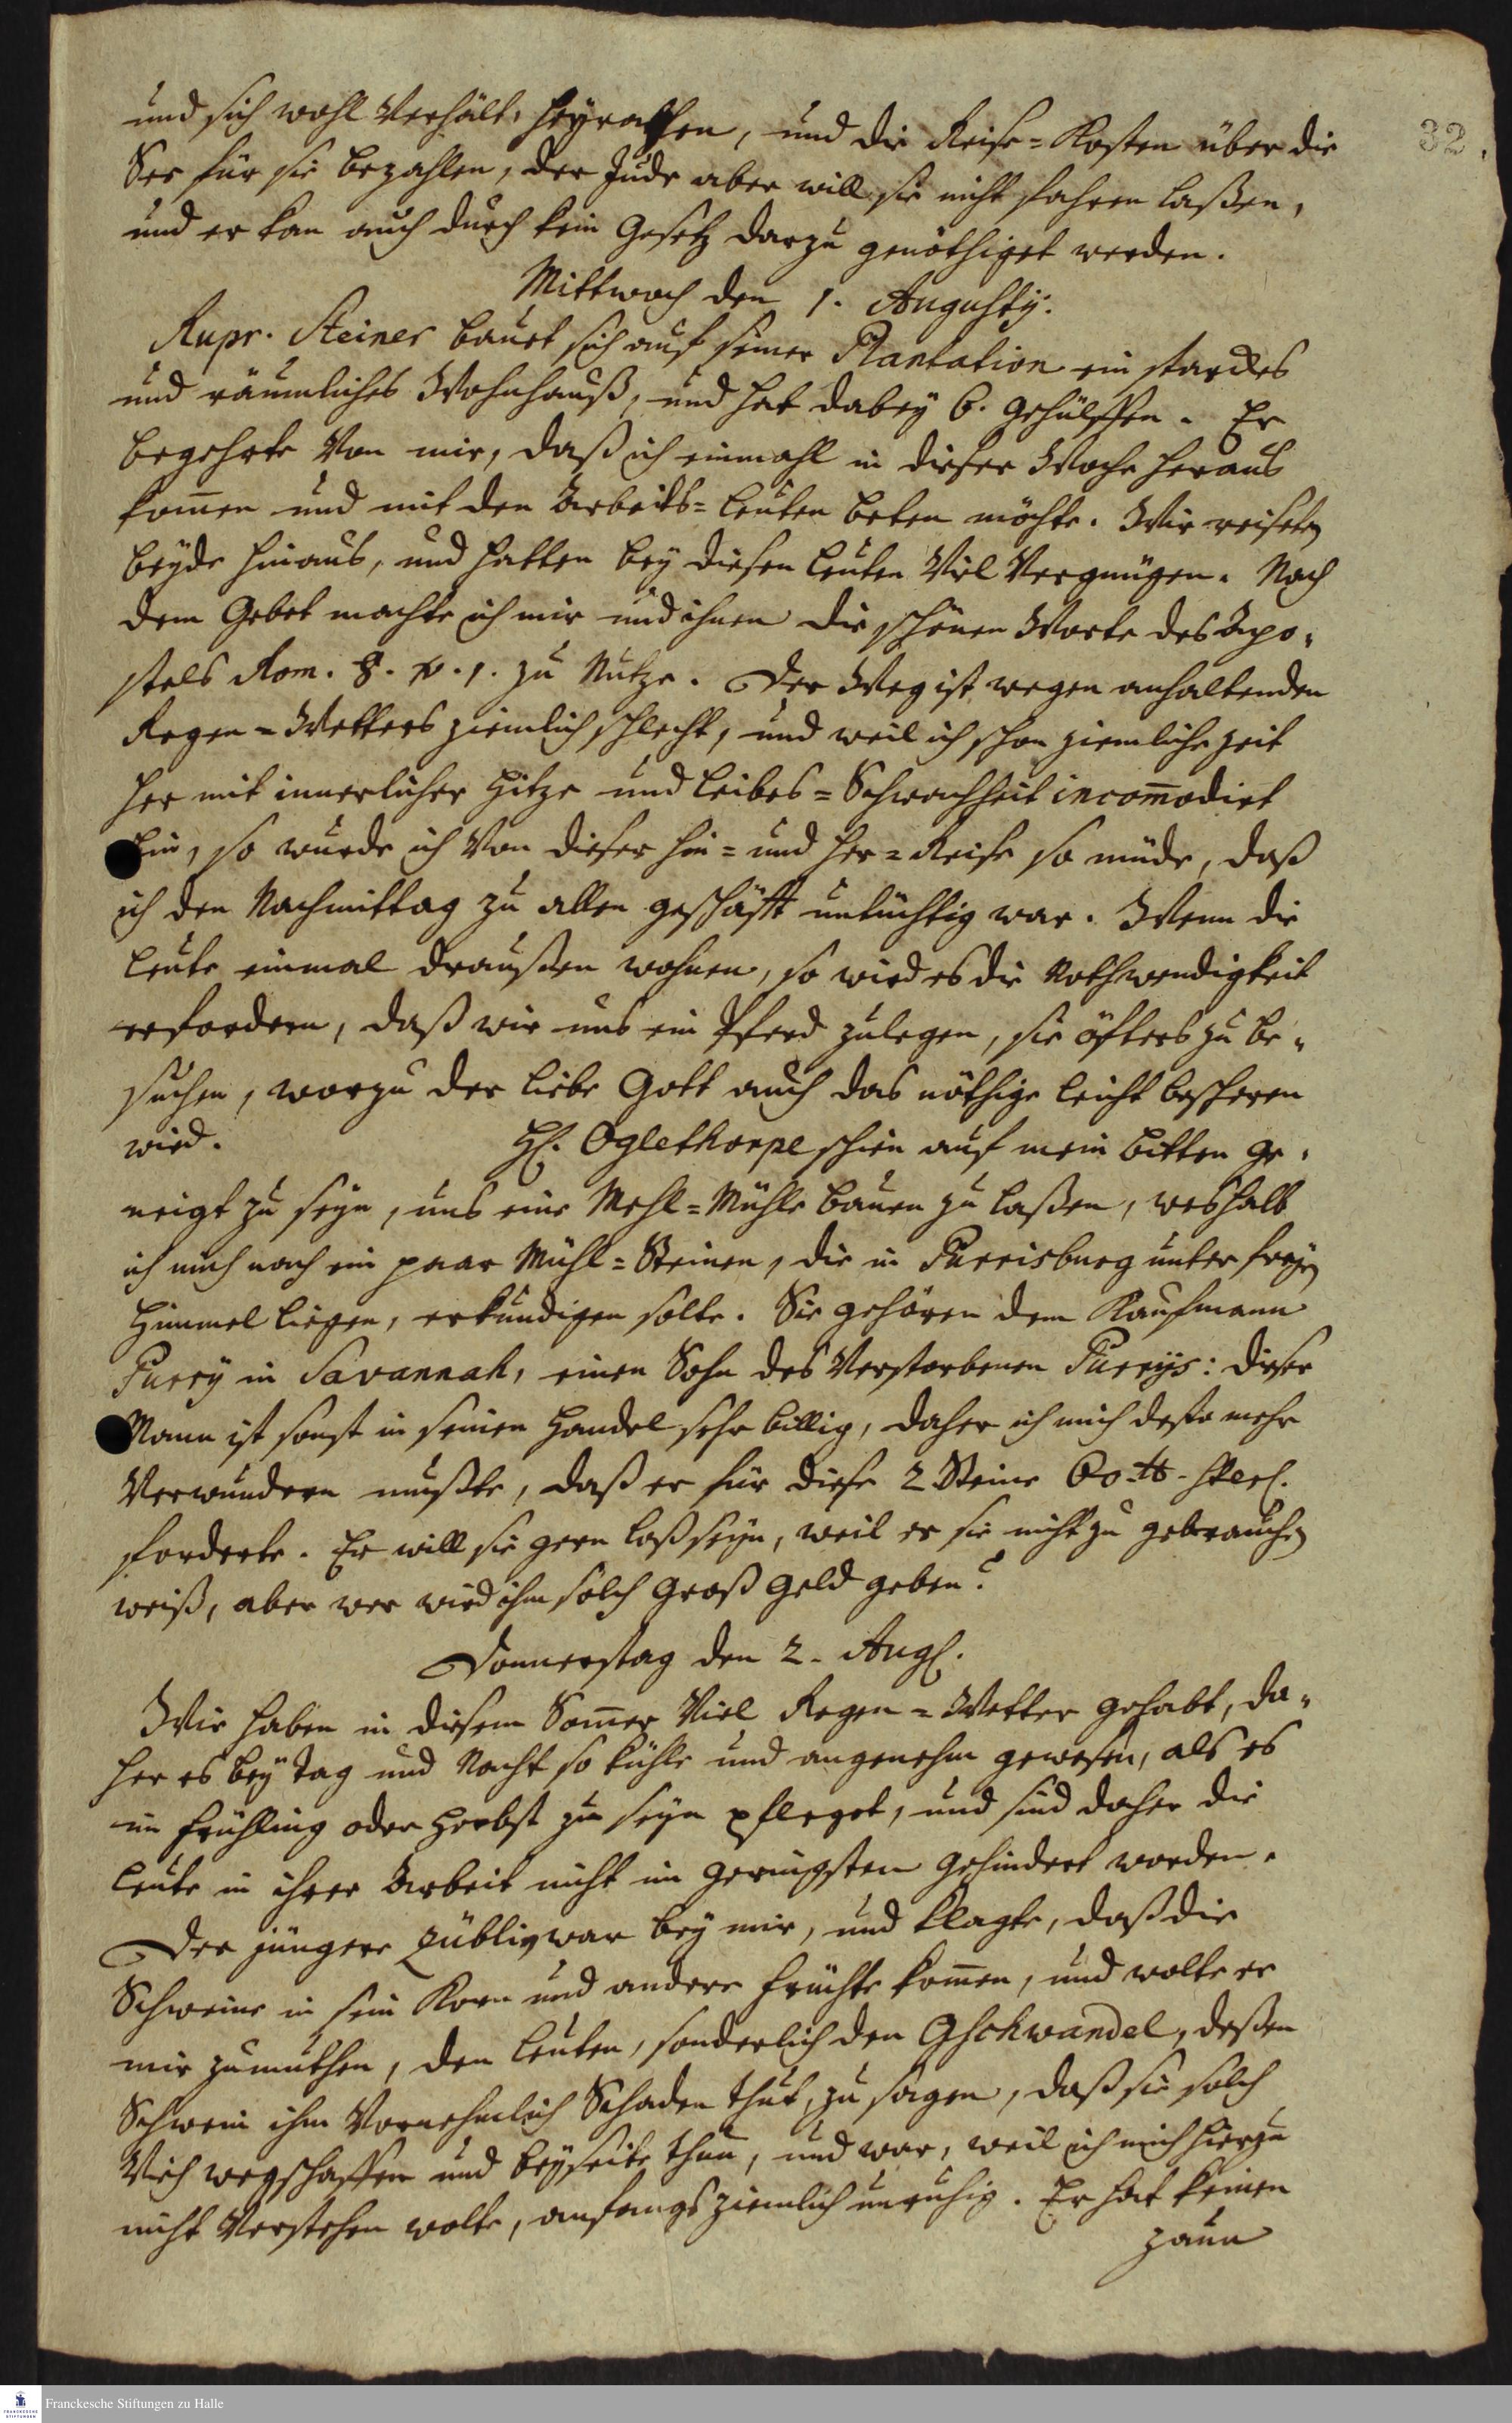 32.
und sich wohl verhält, heyrathen, und die Reise=Kosten über die
See für sie bezahlen, der Jude aber will sie nicht fahren laßen,
und er kan auch durch kein Gesetz darzu genöthiget werden.
Mittwoch den 1. Augusty.
Rupr. Steiner bauet sich auf seiner Plantation ein starckes
und räumliches Wohnhauß, und hat dabey 6. Gehülffen. Er
begehrte von mir, daß ich einmahl in dieser Woche heraus
kom̄en und mit den Arbeits=Leuten beten möchte. Wir reiseten
beyde hinaus, und hatten bey diesen Leuten viel Vergnügen. Nach
dem Gebet machte ich mir und ihnen die schönen Worte des Apo=
stels Rom. 8. v. 1. zu Nutze. Der Weg ist wegen anhaltenden
Regen=Wetters ziemlich schlecht, und weil ich schon ziemliche Zeit
her mit innerlicher Hitze und Leibes=Schwachheit incom̄odirt
bin, so wurde ich von dieser hin= und her=Reise so müde, daß
ich den Nachmittag zu allen geschäfft untüchtig war. Wenn die
Leute einmal draußen wohnen, so wird es die Nothwendigkeit
erfordern, daß wir uns ein Pferd zulegen, sie öfters zu be=
suchen, worzu der liebe Gott auch das nöthige leicht bescheren
wird. H. Oglethorpe schien auf mein Bitten ge=
neigt zu seyn, uns eine Mehl=Mühle bauen zu laßen, weshalb
ich mich nach ein paar Mühl=Steinen, die in Purrisburg unter freyen
Himmel liegen, erkundigen solte. Sie gehören dem Kaufmann
Purry in Savannah, einen Sohn des verstorbenen Purrys: dieser
Mann ist sonst in seinen Handel sehr billig, daher ich mich desto mehr
verwundern mußte, daß er für diese 2 Steine 60 lb. Sterl.
forderte. Er will sie gern loß seyn, weil er sie nicht zu gebrauchen
weiß, aber wer wird ihm solch groß Geld geben?
Donnerstag den 2. Aug.
Wir haben in diesem Som̄er viel Regen=Wetter gehabt, da=
her es bey Tag und Nacht so kühle und angenehm gewesen, als es
im Frühling oder Herbst zu seyn pfleget, und sind daher die
Leute in ihrer Arbeit nicht im geringsten gehindert worden.
Der jüngere Zübli war bey mir, und klagte, daß die
Schweine in sein Korn und andere Früchte kom̄en, und wolte er
mir zumuthen, den Leuten, sonderlich den Gschwandel, deßen
Schwein ihm vornehmlich Schaden thut, zu sagen, daß sie solch
Vieh wegschaffen und beyseite thun, und war, weil ich mich hierzu
nicht verstehen wolte, anfangs ziemlich unruhig. Er hat keinen
Zaun
Franckesche Stiftungen zu Halle